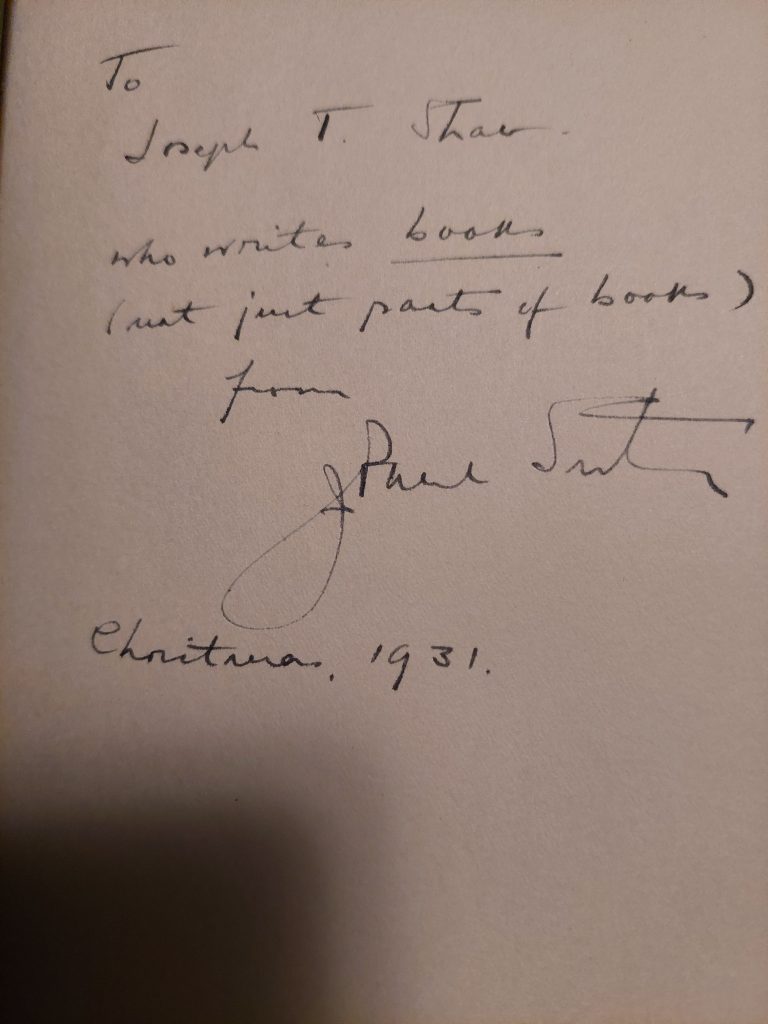 To
Joseph T. Shaw.
who writes books
(not just parts of books)
from
J Paul Suter
Christmas, 1931.